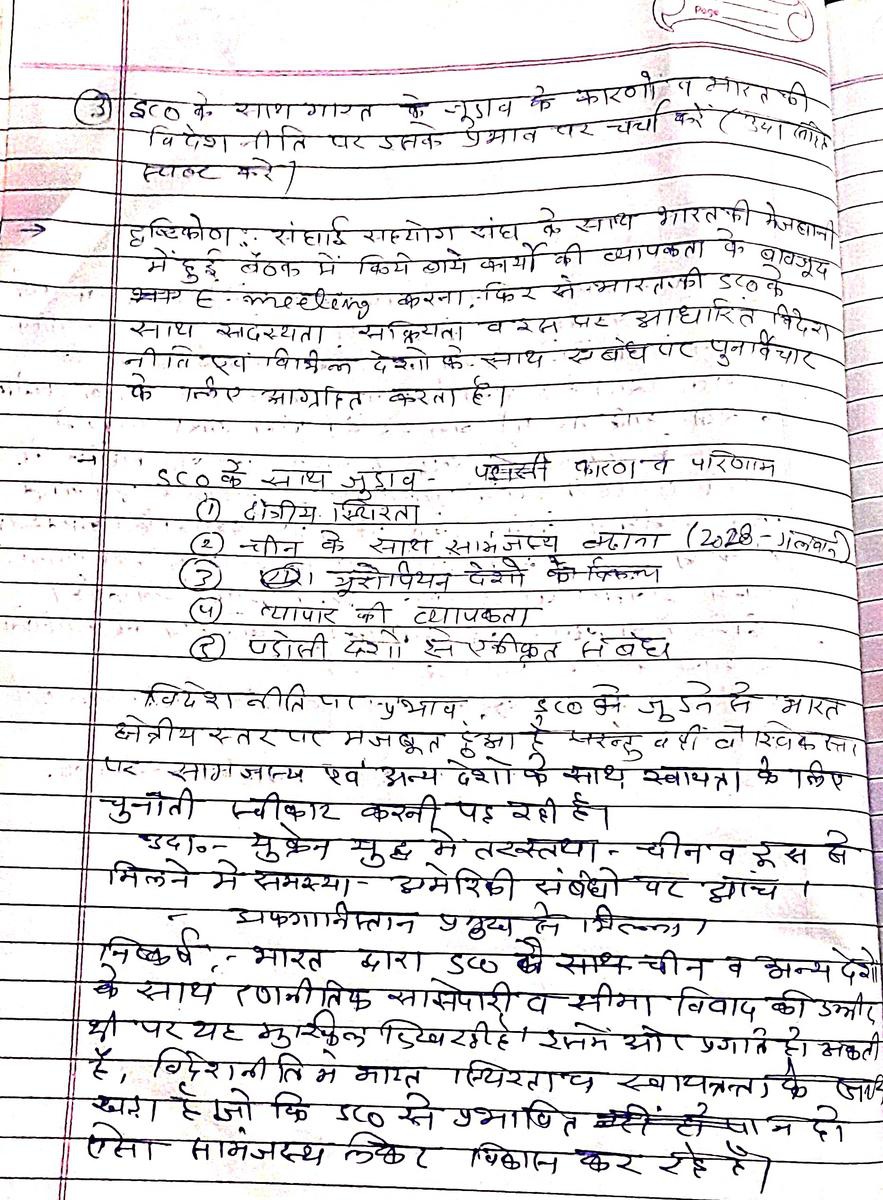 Page
③ SCO के साथ भारत के जुडाव के कारणों व भारत की
विदेश नीति पर उसके प्रभाव पर चर्चा करें (उदा. सहित
स्पष्ट करे)
→ दृष्टिकोण :. संघाई सहयोग संघ के साथ भारत की मेजबानी
में हुई बैठक में किये गये कार्यो की व्यापकता के बावजूद
E-meeting करना, फिर से भारत की SCO के
साथ सदस्यता, सक्रियता व इस पर आधारित विदेश
नीति एवं विभिन्न देशो के साथ संबंध पर पुनर्विचार
के लिए आग्रहित करता है।
→ SCO के साथ जुडाव - कारण व परिणाम
① क्षेत्रीय स्थिरता
② चीन के साथ सामंजस्य बढाना (2028 - गलवान)
③ यूरोपियन देशों के विकल्प
④ व्यापार की व्यापकता
⑤ पडोसी देशों से एकीकृत संबंध
विदेश नीति पर प्रभाव :. SCO से जुडने से भारत
क्षेत्रीय स्तर पर मजबूत हुआ है परन्तु वहीं वैश्विक स्तर
पर सामंजस्य एवं अन्य देशो के साथ स्वायत्ता के लिए
चुनौती स्वीकार करनी पड रही है।
उदा०- युक्रेन युद्ध मे तटस्तथा - चीन व रूस से
मिलने मे समस्या - अमेरिकी संबंधो पर आंच।
- अफगानिस्तान प्रमुख से मिलना।
निष्कर्ष :- भारत द्वारा SCO के साथ चीन व अन्य देशो
के साथ रणनीतिक साझेदारी व सीमा विवाद की उम्मीद
थी पर यह मुश्किल दिख रही है। इसमें और प्रगति हो सकती
है, विदेश नीति मे भारत स्थिरता व स्वायत्तता के साथ
खडा है जो कि SCO से प्रभावित न हो
ऐसा सामंजस्य लेकर विकास कर रहे है।